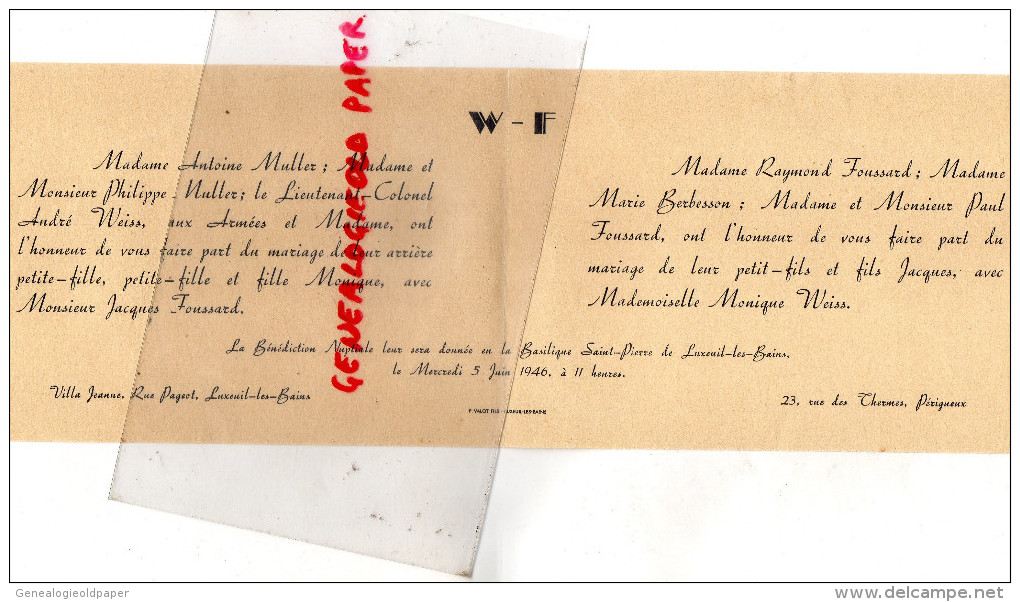 W - F
Madame Antoine Muller ; Madame et
Monsieur Philippe Muller ; le Lieutenant-Colonel
André Weiss, aux Armées et Madame, ont
l'honneur de vous faire part du mariage de leur arrière
petite-fille, petite-fille et fille Monique, avec
Monsieur Jacques Foussard.
Madame Raymond Foussard ; Madame
Marie Berbesson ; Madame et Monsieur Paul
Foussard, ont l'honneur de vous faire part du
mariage de leur petit-fils et fils Jacques, avec
Mademoiselle Monique Weiss.
La Bénédiction Nuptiale leur sera donnée en la Basilique Saint-Pierre de Luxeuil-les-Bains,
le Mercredi 5 Juin 1946, à 11 heures.
Villa Jeanne, Rue Pageot, Luxeuil-les-Bains
23, rue des Thermes, Périgueux
P. VALOT FILS - LUXEUIL-LES-BAINS
GENEALOGIEOLD PAPER
Genealogieoldpaper
delcampe.net